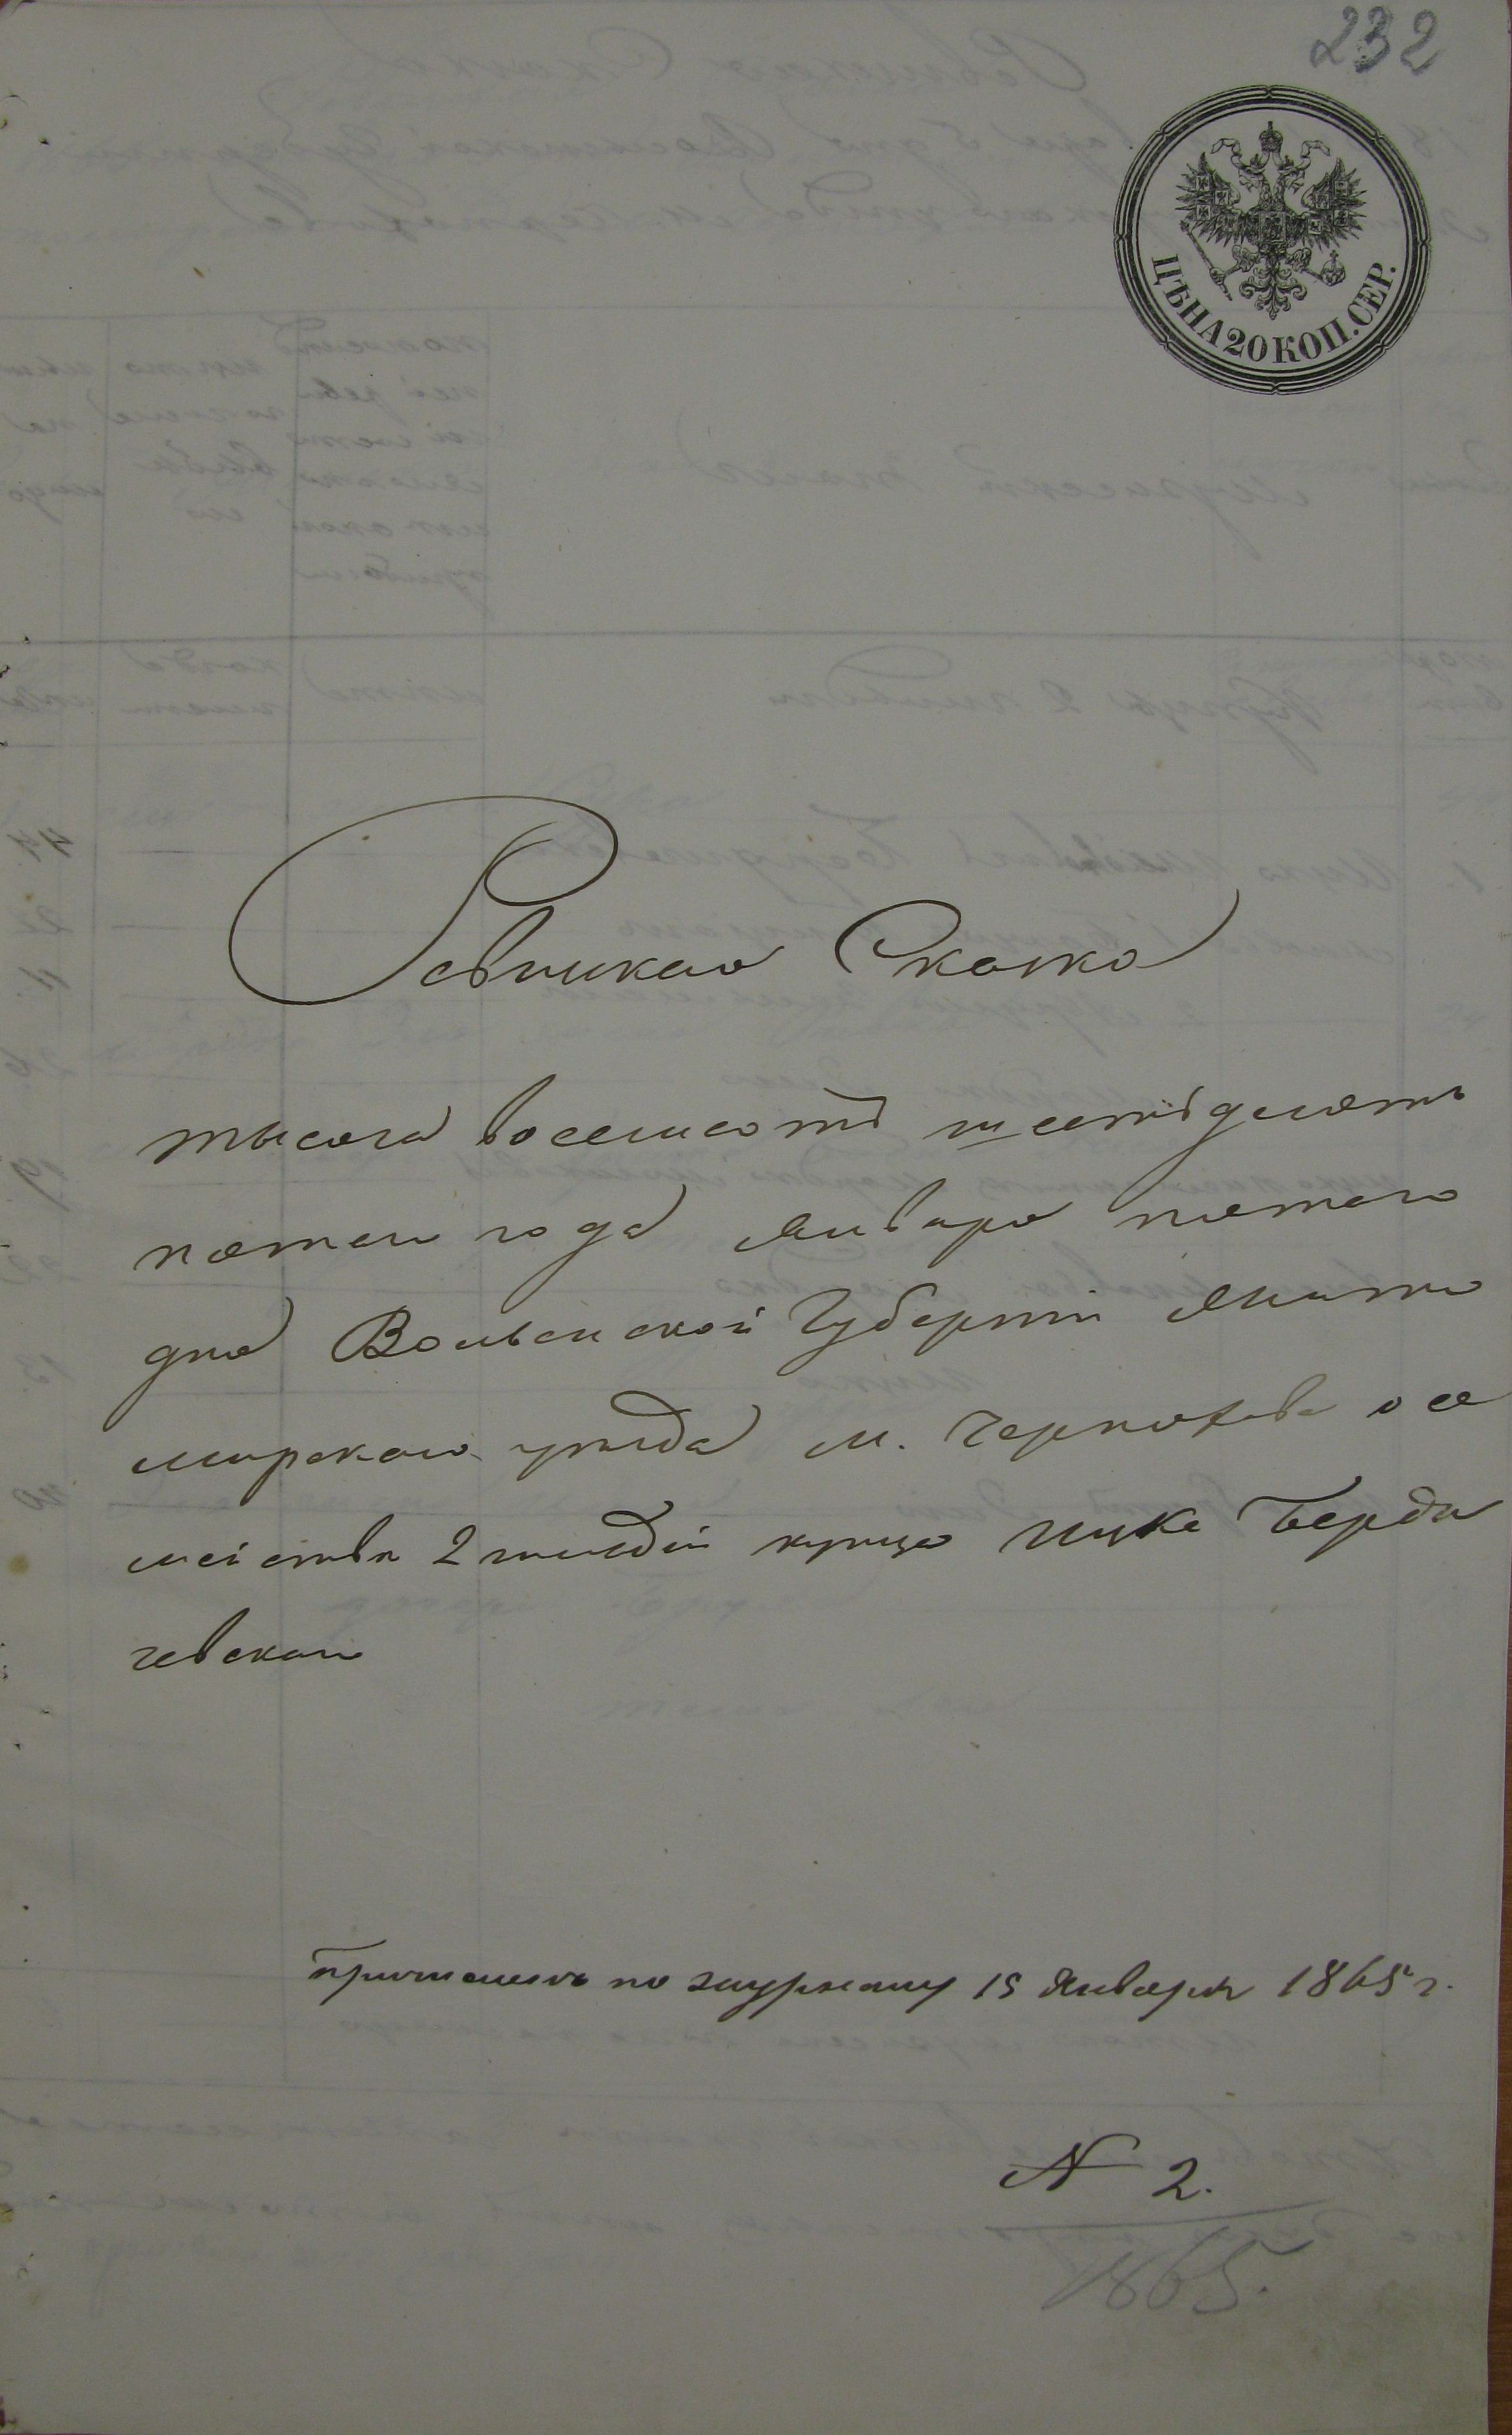 232
ЦѢНА 20 КОП. СЕР.
Ревизская Сказка
тысяча восемьсотъ шестьдесятъ
пятаго года Января пятаго
дня Волынской Губерніи Жито
мирскаго уѣзда м. Черняхова о се
мействѣ 2 гильдіи купца Ицка Берди
чевскаго
по журналу 15 Января 1865 г.
N 2.
1865.